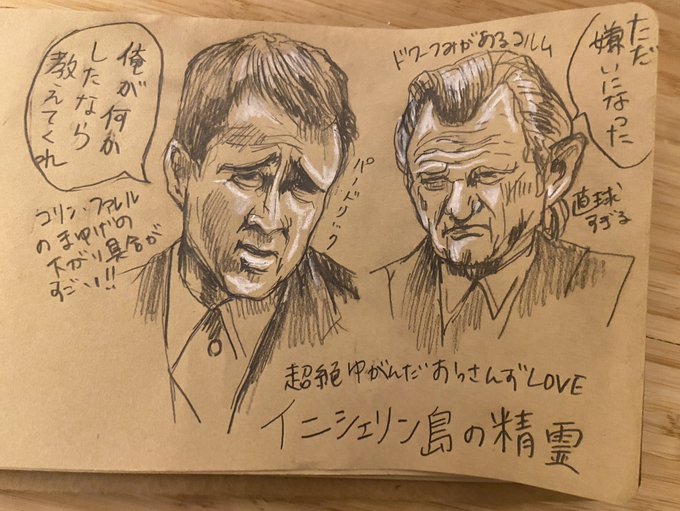 俺が何か
したなら
教えてくれ
コリン・ファレル
のまゆげの
下がり具合が
すごい!!
パードリック
ドワーフみがあるコルム
ただ
嫌いになった
直球
すぎる
超絶ゆがんだおっさんずLOVE
イニシェリン島の精霊